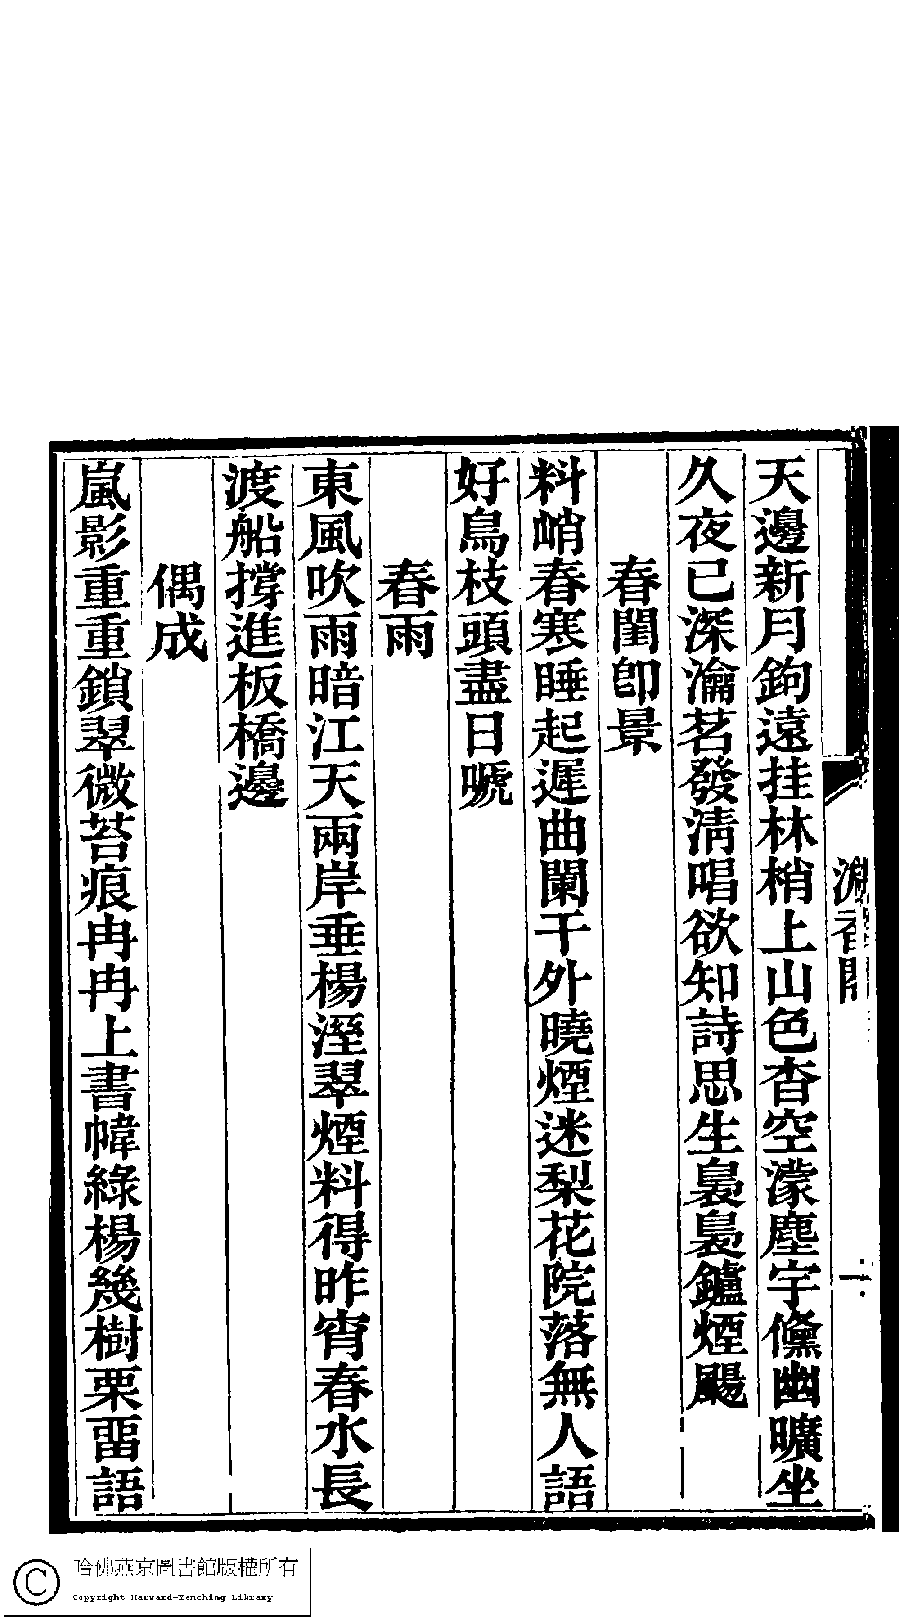 天邊新月鉤遠挂林梢上山色杳空濛塵宇儵幽曠坐
久夜已深瀹茗發淸唱欲知詩思生裊裊鑪煙颺
春閨卽景
料峭春寒睡起遲曲闌干外曉煙迷梨花院落無人語
好鳥枝頭盡日嗁
春雨
東風吹雨暗江天兩岸垂楊溼翠煙料得昨宵春水長
渡船撐進板橋邊
偶成
嵐影重重鎖翠微苔痕冉冉上書幃綠楊幾樹栗畱語
香閣
一
哈佛燕京圖書館版權所有
Copyright Harvard-Yenching Library